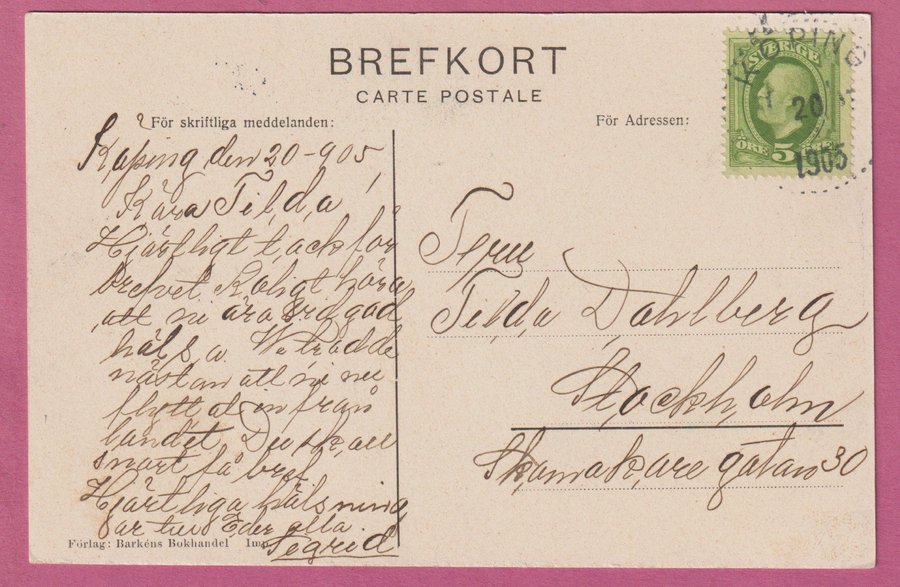 BREFKORT
CARTE POSTALE
För skriftliga meddelanden:
För Adressen:
SVERIGE
KÖPING
20
1905
ÖRE 5
Köping den 20-905
Kära Tilda!
Hjärtligt tack för
brefvet Roligt höra
att ni ära vid god
hälsa. Vi trodde
nästan att ni nu
flyttat in från
landet Du skall
snart få bref.
Hjärtliga hälsning
ar till Eder alla
Sigrid
Fru
Tilda Dahlberg
Stockholm
Skomakaregatan 30
Förlag: Barkéns Bokhandel Imp.